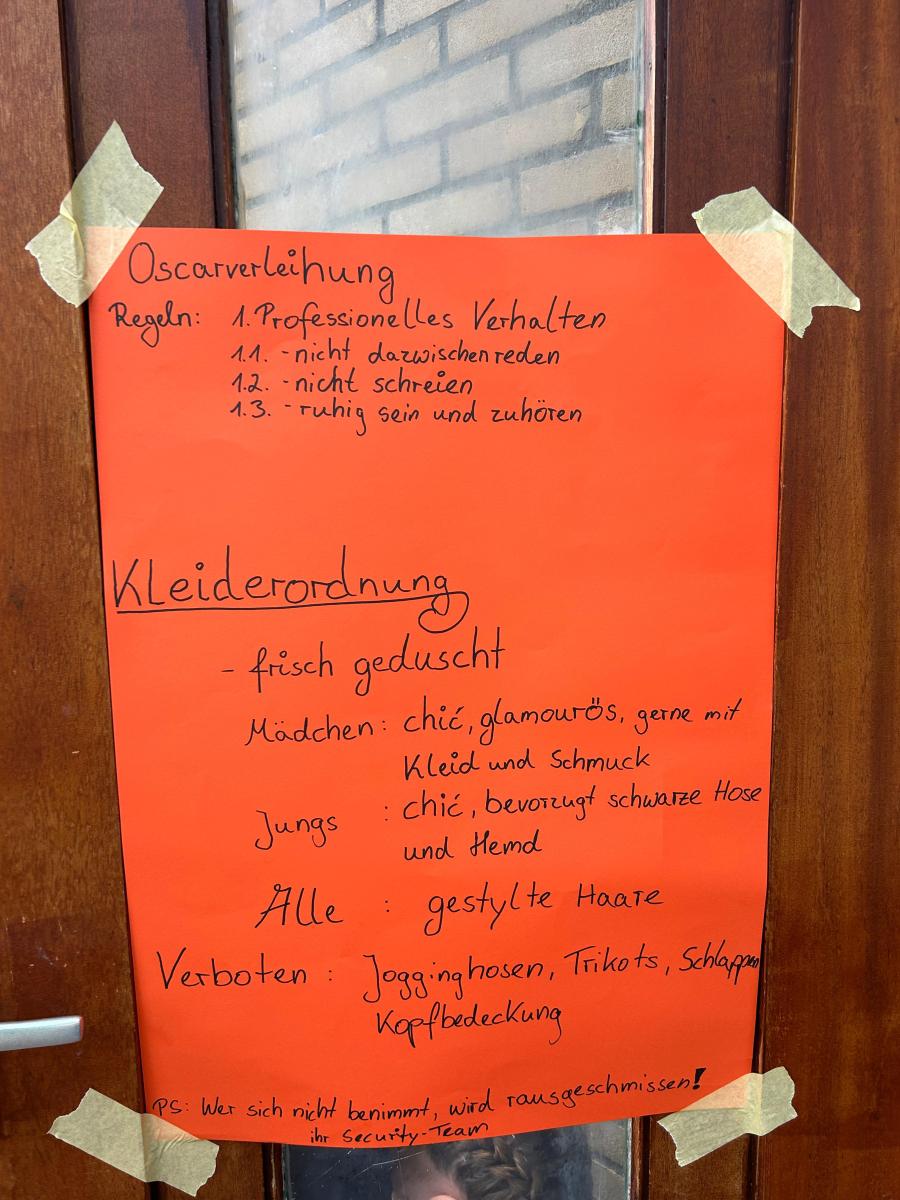 Oscarverleihung
Regeln: 1. Professionelles Verhalten
1.1. - nicht dazwischenreden
1.2. - nicht schreien
1.3. - ruhig sein und zuhören
Kleiderordnung
- frisch geduscht
Mädchen: chić, glamourös, gerne mit
Kleid und Schmuck
Jungs : chić, bevorzugt schwarze Hose
und Hemd
Alle : gestylte Haare
Verboten : Jogginghosen, Trikots, Schlappen
Kopfbedeckung
PS: Wer sich nicht benimmt, wird rausgeschmissen!
ihr Security-Team